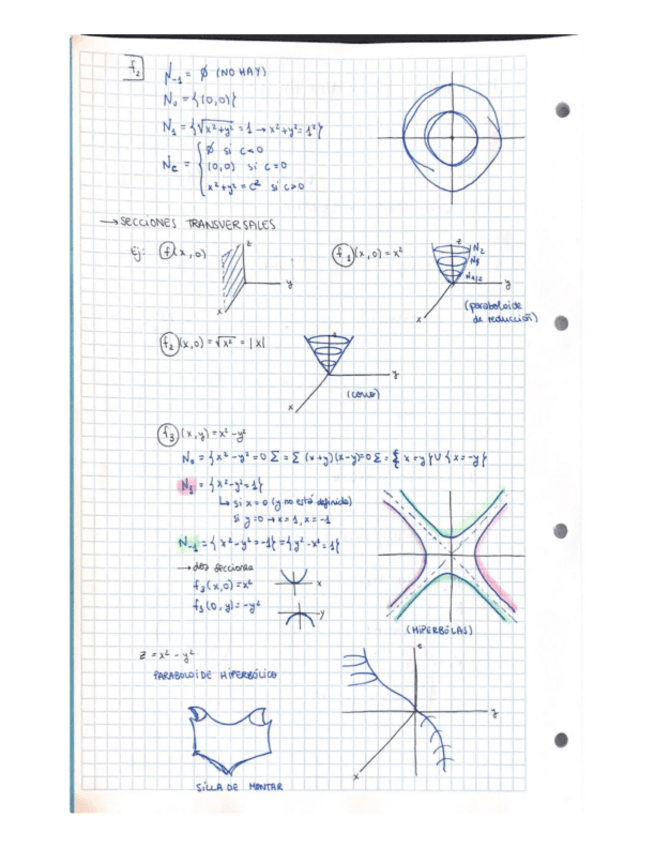 f₂
N₋₁ = ∅ (NO HAY)
N₀ = {(0,0)}
N₁ = {√x²+y² = 1 → x²+y² = 1²}
N_c = { ∅ si c<0
(0,0) si c=0
x²+y² = c² si c>0
→ SECCIONES TRANSVERSALES
Ej: f(x,0)
z
y
x
f₁(x,0) = x²
z
N₂
N₁
N₁/₂
y
x
(paraboloide
de reducción)
f₂(x,0) = √x² = |x|
z
y
x
(cono)
f₃(x,y) = x²-y²
N₀ = {x²-y²=0} = {(x+y)(x-y)=0} = {x=y} ∪ {x=-y}
N₁ = {x²-y²=1}
↳ si x=0 (y no está definida)
si y=0 → x=1, x=-1
N₋₁ = {x²-y²=-1} = {y²-x²=1}
→ dos secciones
f₃(x,0) = x²
x
f₃(0,y) = -y²
y
(HIPERBÓLAS)
z = x² - y²
PARABOLOIDE HIPERBÓLICO
z
y
x
SILLA DE MONTAR